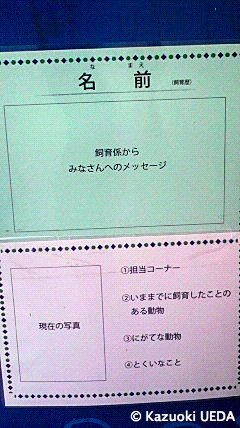 な まえ
名前 (飼育歴)
飼育係から
みなさんへのメッセージ
現在の写真
①担当コーナー
②いままでに飼育したことの
ある動物
③にがてな動物
④とくいなこと
© Kazuoki UEDA